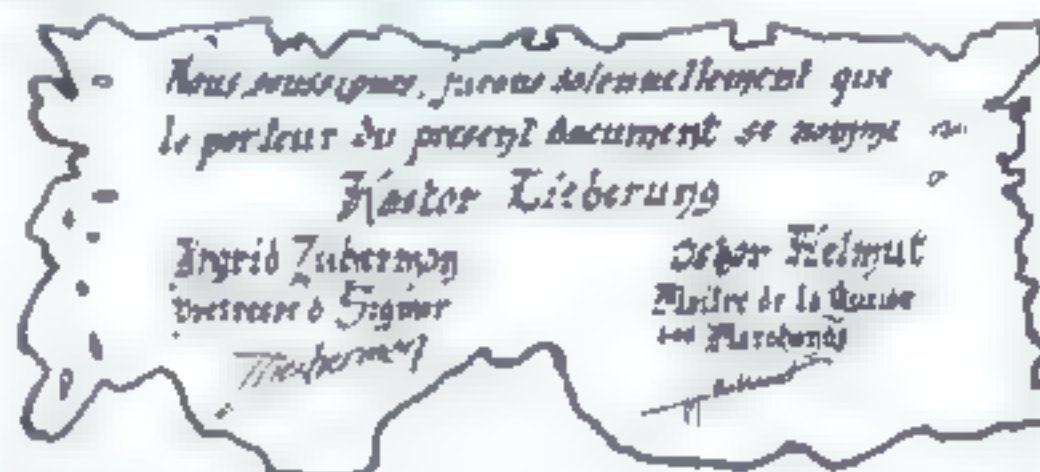 Nous, soussignes, jurons solennellement que
le porteur du present document se nomme
Kastor Lieberung
Ingrid Zuberman
Pretresse d Sigmar
Oskar Helmut
Maitre de la Guilde
des Marchands